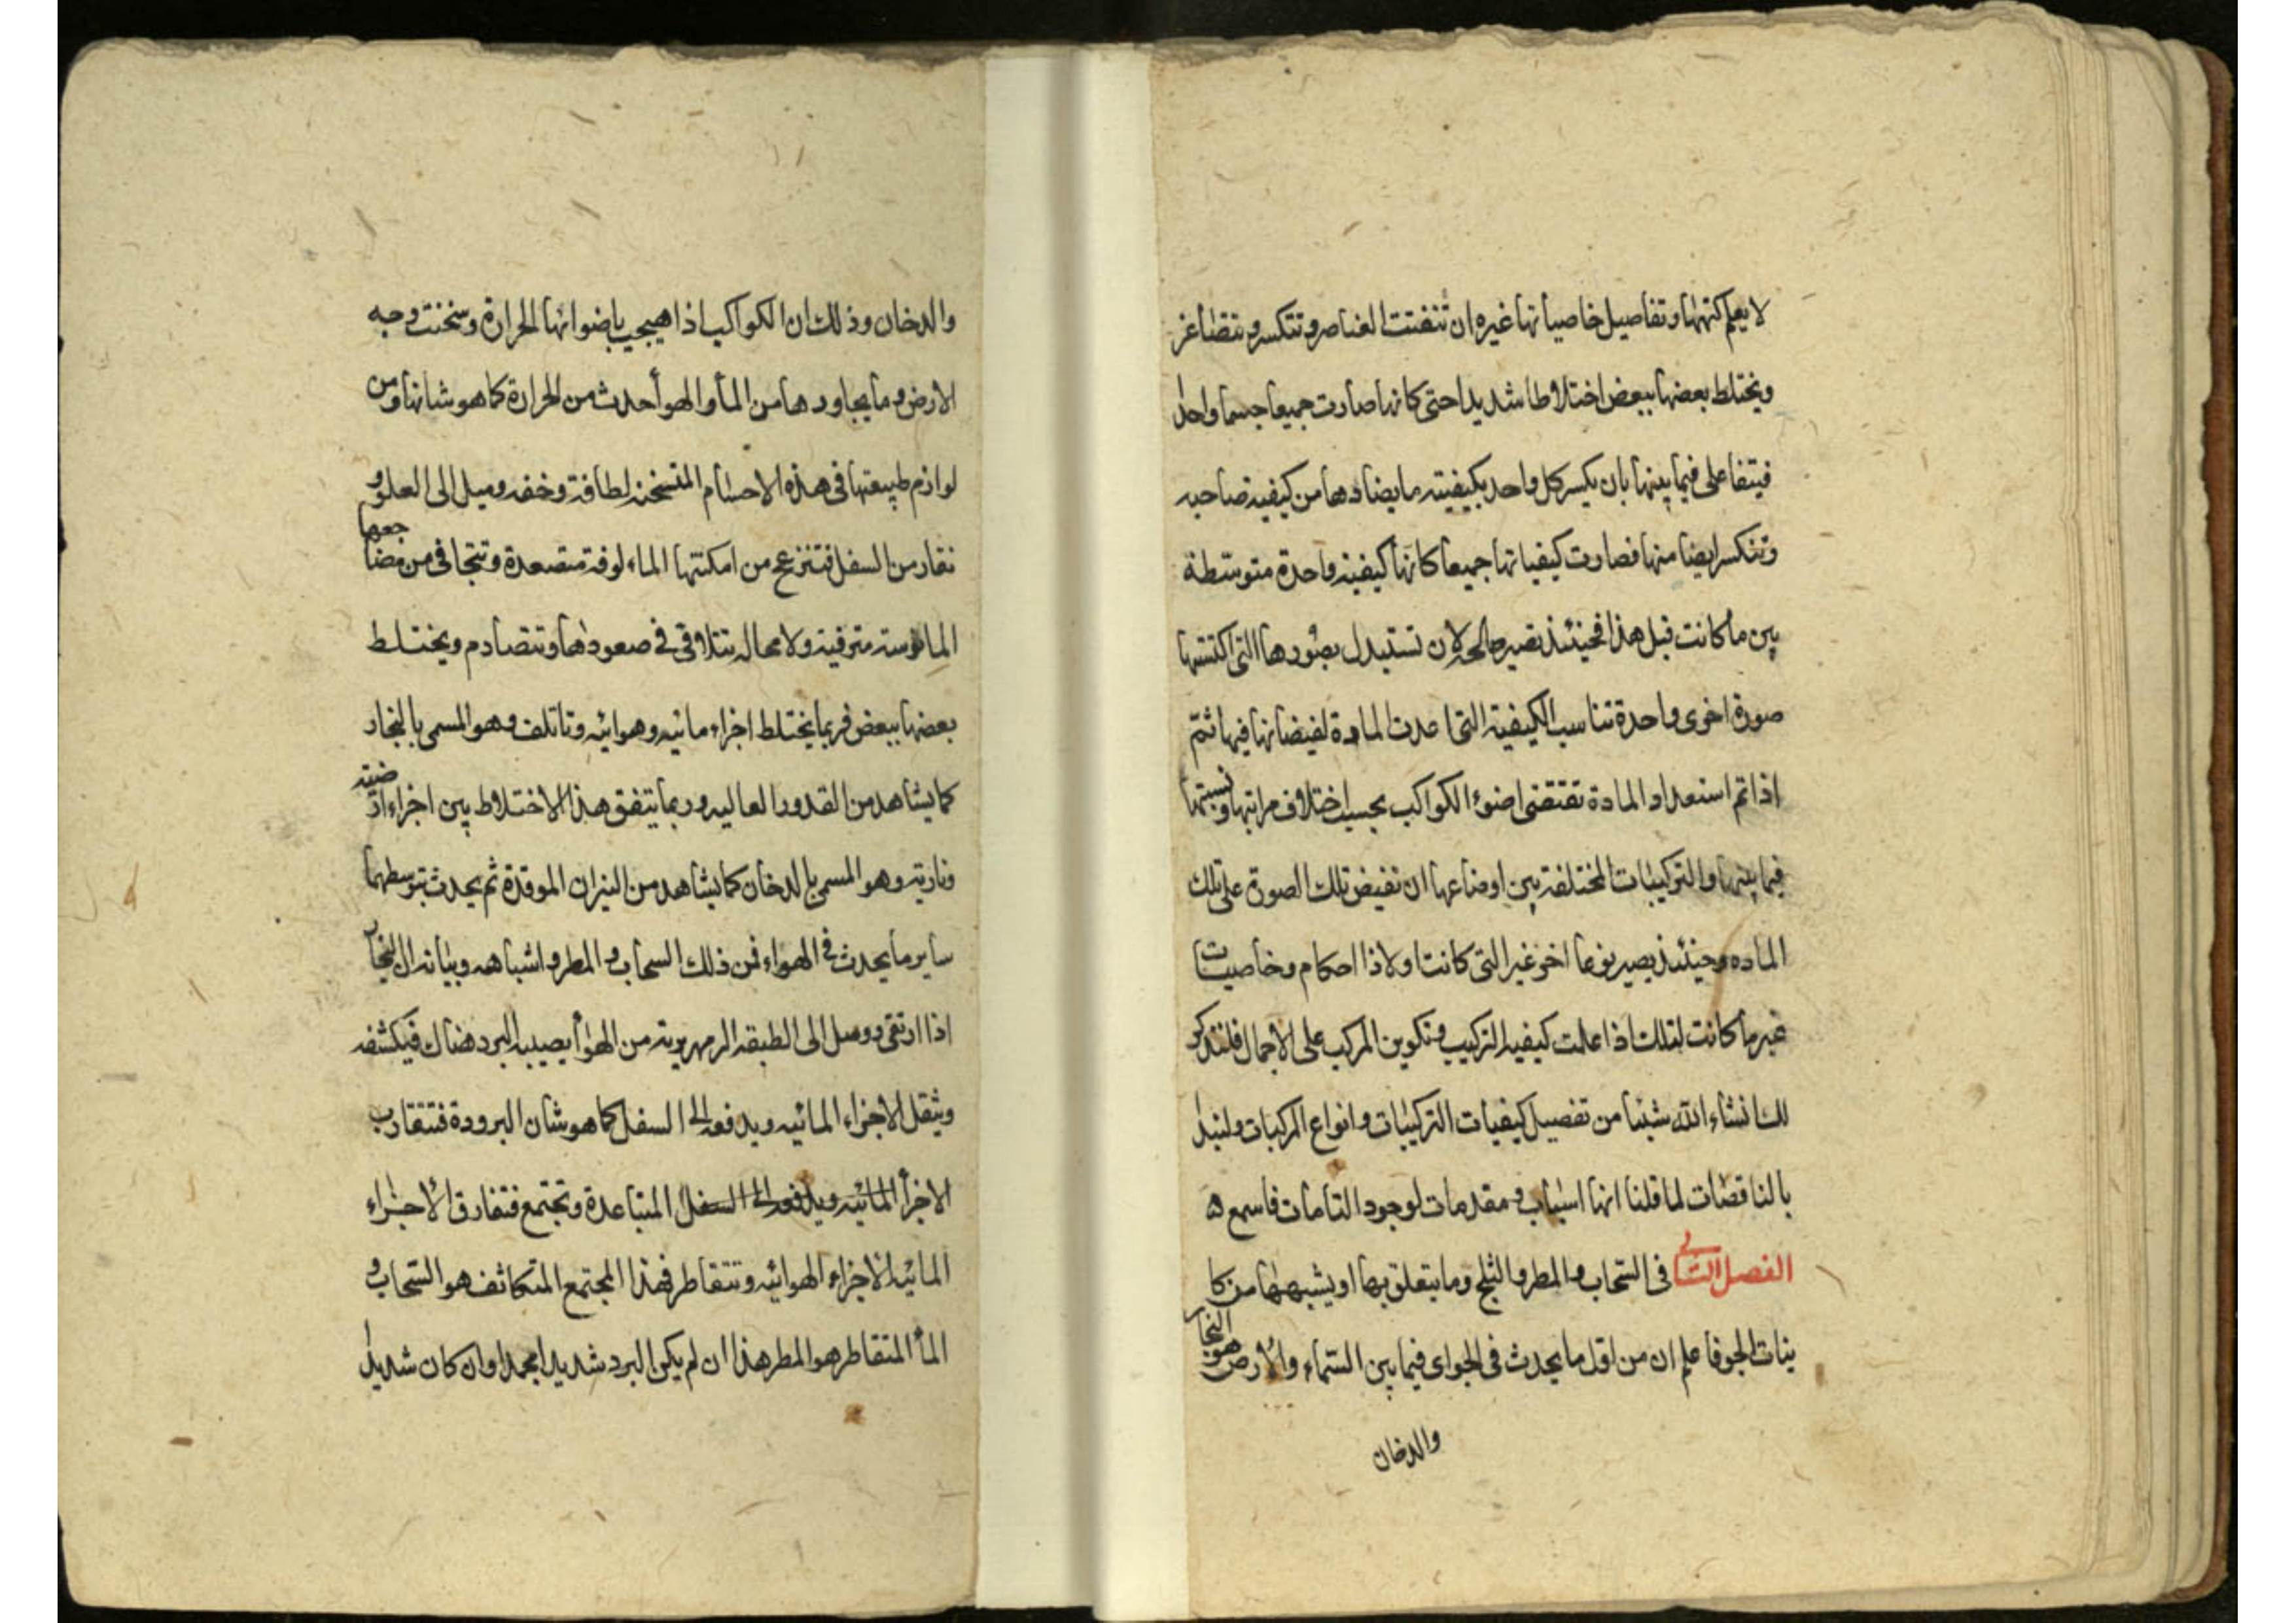 لا يعلم كنهها وتفاصيل خاصياتها غيره ان تتفتت العناصر وتتكسر وتتصاغر
ويختلط بعضها ببعض اختلاطا شديدا حتى كانها صارت جميعا جسما واحدا
فيتفاعلى فيما بينها بان يكسر كل واحد بكيفيته ما يضادها من كيفية صاحبه
وتنكسر ايضا منها فصارت كيفياتها جميعا كانها كيفية واحدة متوسطة
بين ما كانت قبل هذا فحينئذ تصير صالحه لان تستبدل بصورها التى اكتستها
صورة اخرى واحدة تناسب الكيفية التى اعدت المادة لفيضانها فيها ثم
اذا تم استعداد المادة تقتضى اضوء الكواكب بحسب اختلاف مراتبها ونسبتها
فيما بينها والتركيبات المختلفة بين اوضاعها ان تفيض تلك الصورة على تلك
الماده وحينئذ يصير نوعا اخر غير التى كانت اولا ذا احكام وخاصيات
غير ما كانت لتلك اذا علمت كيفية التركيب وتكوين المركب على الاجمال فلنذكر
لك انشاء الله شيئا من تفصيل كيفيات التركيبات وانواع المركبات ولنبدا
بالناقصات لما قلنا انها اسباب ومقدمات لوجود التامات فاسمع ه
الفصل الثانى فى السحاب والمطر والثلج وما يتعلق بها او يشبهها من كا
ينات الجو فاعلم ان من اقل ما يحدث فى الجو اى فيما بين السماء والارض هو البخار
والدخان
والدخان وذلك ان الكواكب اذا هيجب باضوائها الحرارة وسخنت وجه
الارض وما يجاورها من الماء والهوا احدث من الحرارة كما هو شانها ومن
لوازم طبيعتها فى هذه الاجسام المتسخنه لطافة وخفه وميل الى العلو و
نفار من السفل فتنزعج من امكنتها المالوفة متصعدة وتتجافى من مضاجعها
المانوسة مترقية ولا محاله تتلاقى فى صعودها وتتصادم ويختلط
بعضها ببعض فربما يختلط اجزاء مائيه وهوائيه وتاتلف وهو المسمى بالبخار
كما يشاهد من القدور الغاليه وربما يتفق هذا الاختلاط بين اجزاء ارضيته
وناريته وهو المسمى بالدخان كما يشاهد من النيران الموقدة ثم يحدث بتوسطهما
ساير ما يحدث فى الهواء فمن ذلك السحاب والمطر واشباهه وبيانه ان البخار
اذا ارتقى ووصل الى الطبقه الزمهريرية من الهوا يصيبه البرد هناك فيكثفه
ويثقل الاجزاء المائيه ويدفعه الى السفل كما هو شان البرودة فتتقارب
الاجزأ المائيه ويدفعه الى السفل المتباعدة وتجتمع فتفارق الاجزاء
المائيه الاجزاء الهوائيه وتتقاطر فهذا المجتمع المتكاثف هو السحاب و
المأ المتقاطر هو المطر هذا ان لم يكن البرد شديدا مجمدا وان كان شديدا